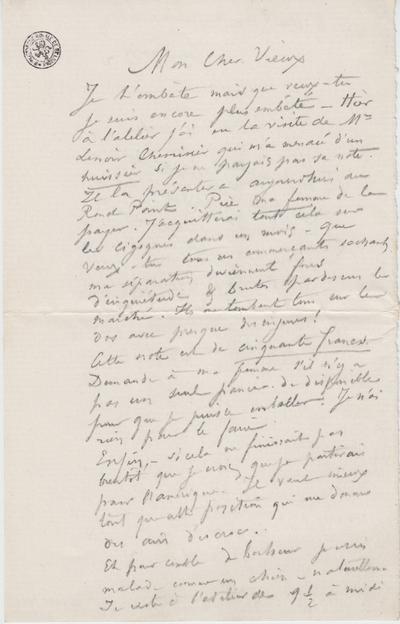 Mon Cher Vieux
Je t'embête mais que veux-tu
je suis encore plus embêté – Hier
à l'atelier j'ai eu la visite de Mr
Lenoir Chemisier qui m'a menacé d'un
huissier si je ne payais pas sa note.
Il la présentera aujourd'hui au
Rond Point. Prie ma femme de la
payer. J'acquitterai tout cela sur
les cigognes dans un mois – que
veux-tu tous ces commerçants sachant
ma séparation deviennent fous
d'inquiétude & brutes pardessus le
marché. Ils me tombent tous sur le
dos avec presque des injures!
Cette note est de cinquante francs.
Demande à ma femme s'il n'y a
pas un seul panneau de disponible
pour que je puisse travailler. Je n'ai
rien pour le faire.
Enfin, – si cela ne finissait pas
bientôt je crois que je partirais
pour l'Amérique. Je vaux mieux
tout que cette position qui me donne
des airs d'escroc.
Et pour comble de bonheur je suis
malade comme un chien – naturellement
Je reste à l'atelier des 9 1/2 à midi